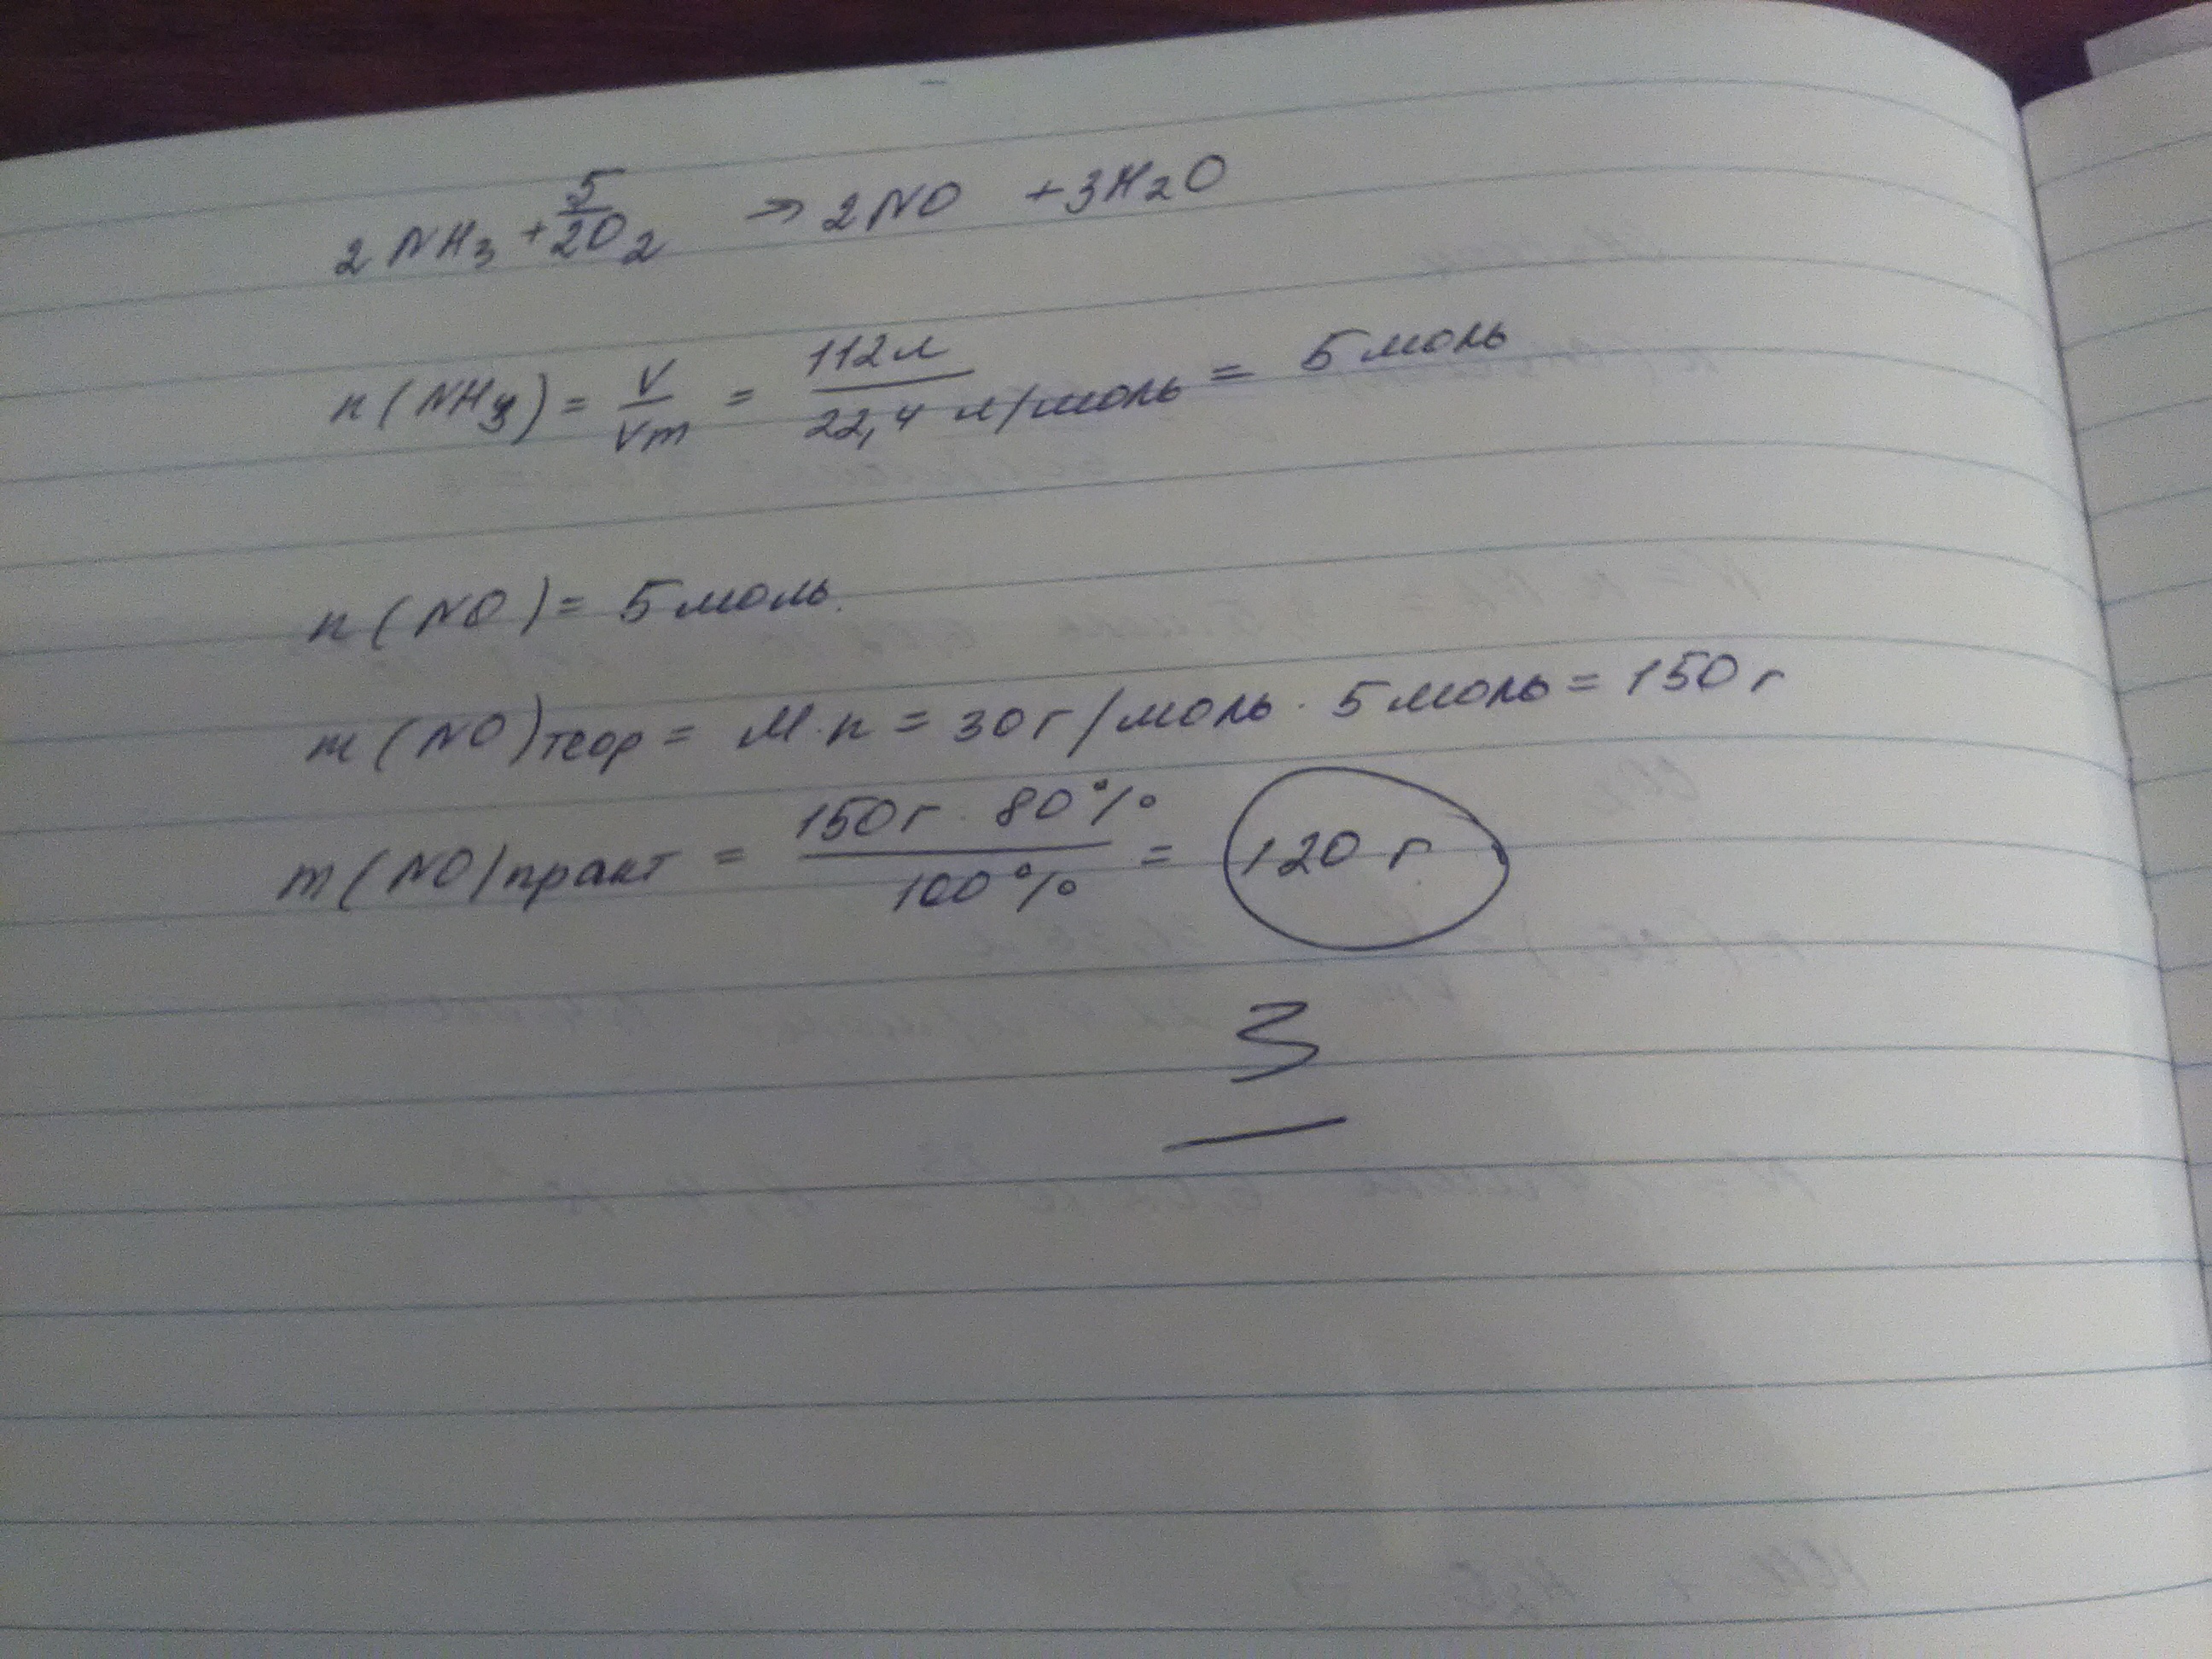 2NH3 + 5/2O2 → 2NO + 3H2O
n(NH3) = V/Vm = 112л/22,4 л/моль = 5 моль
n(NO) = 5 моль.
m(NO)теор = M·n = 30г/моль · 5 моль = 150 г
m(NO)практ = 150г · 80%/100% = 120 г.
3